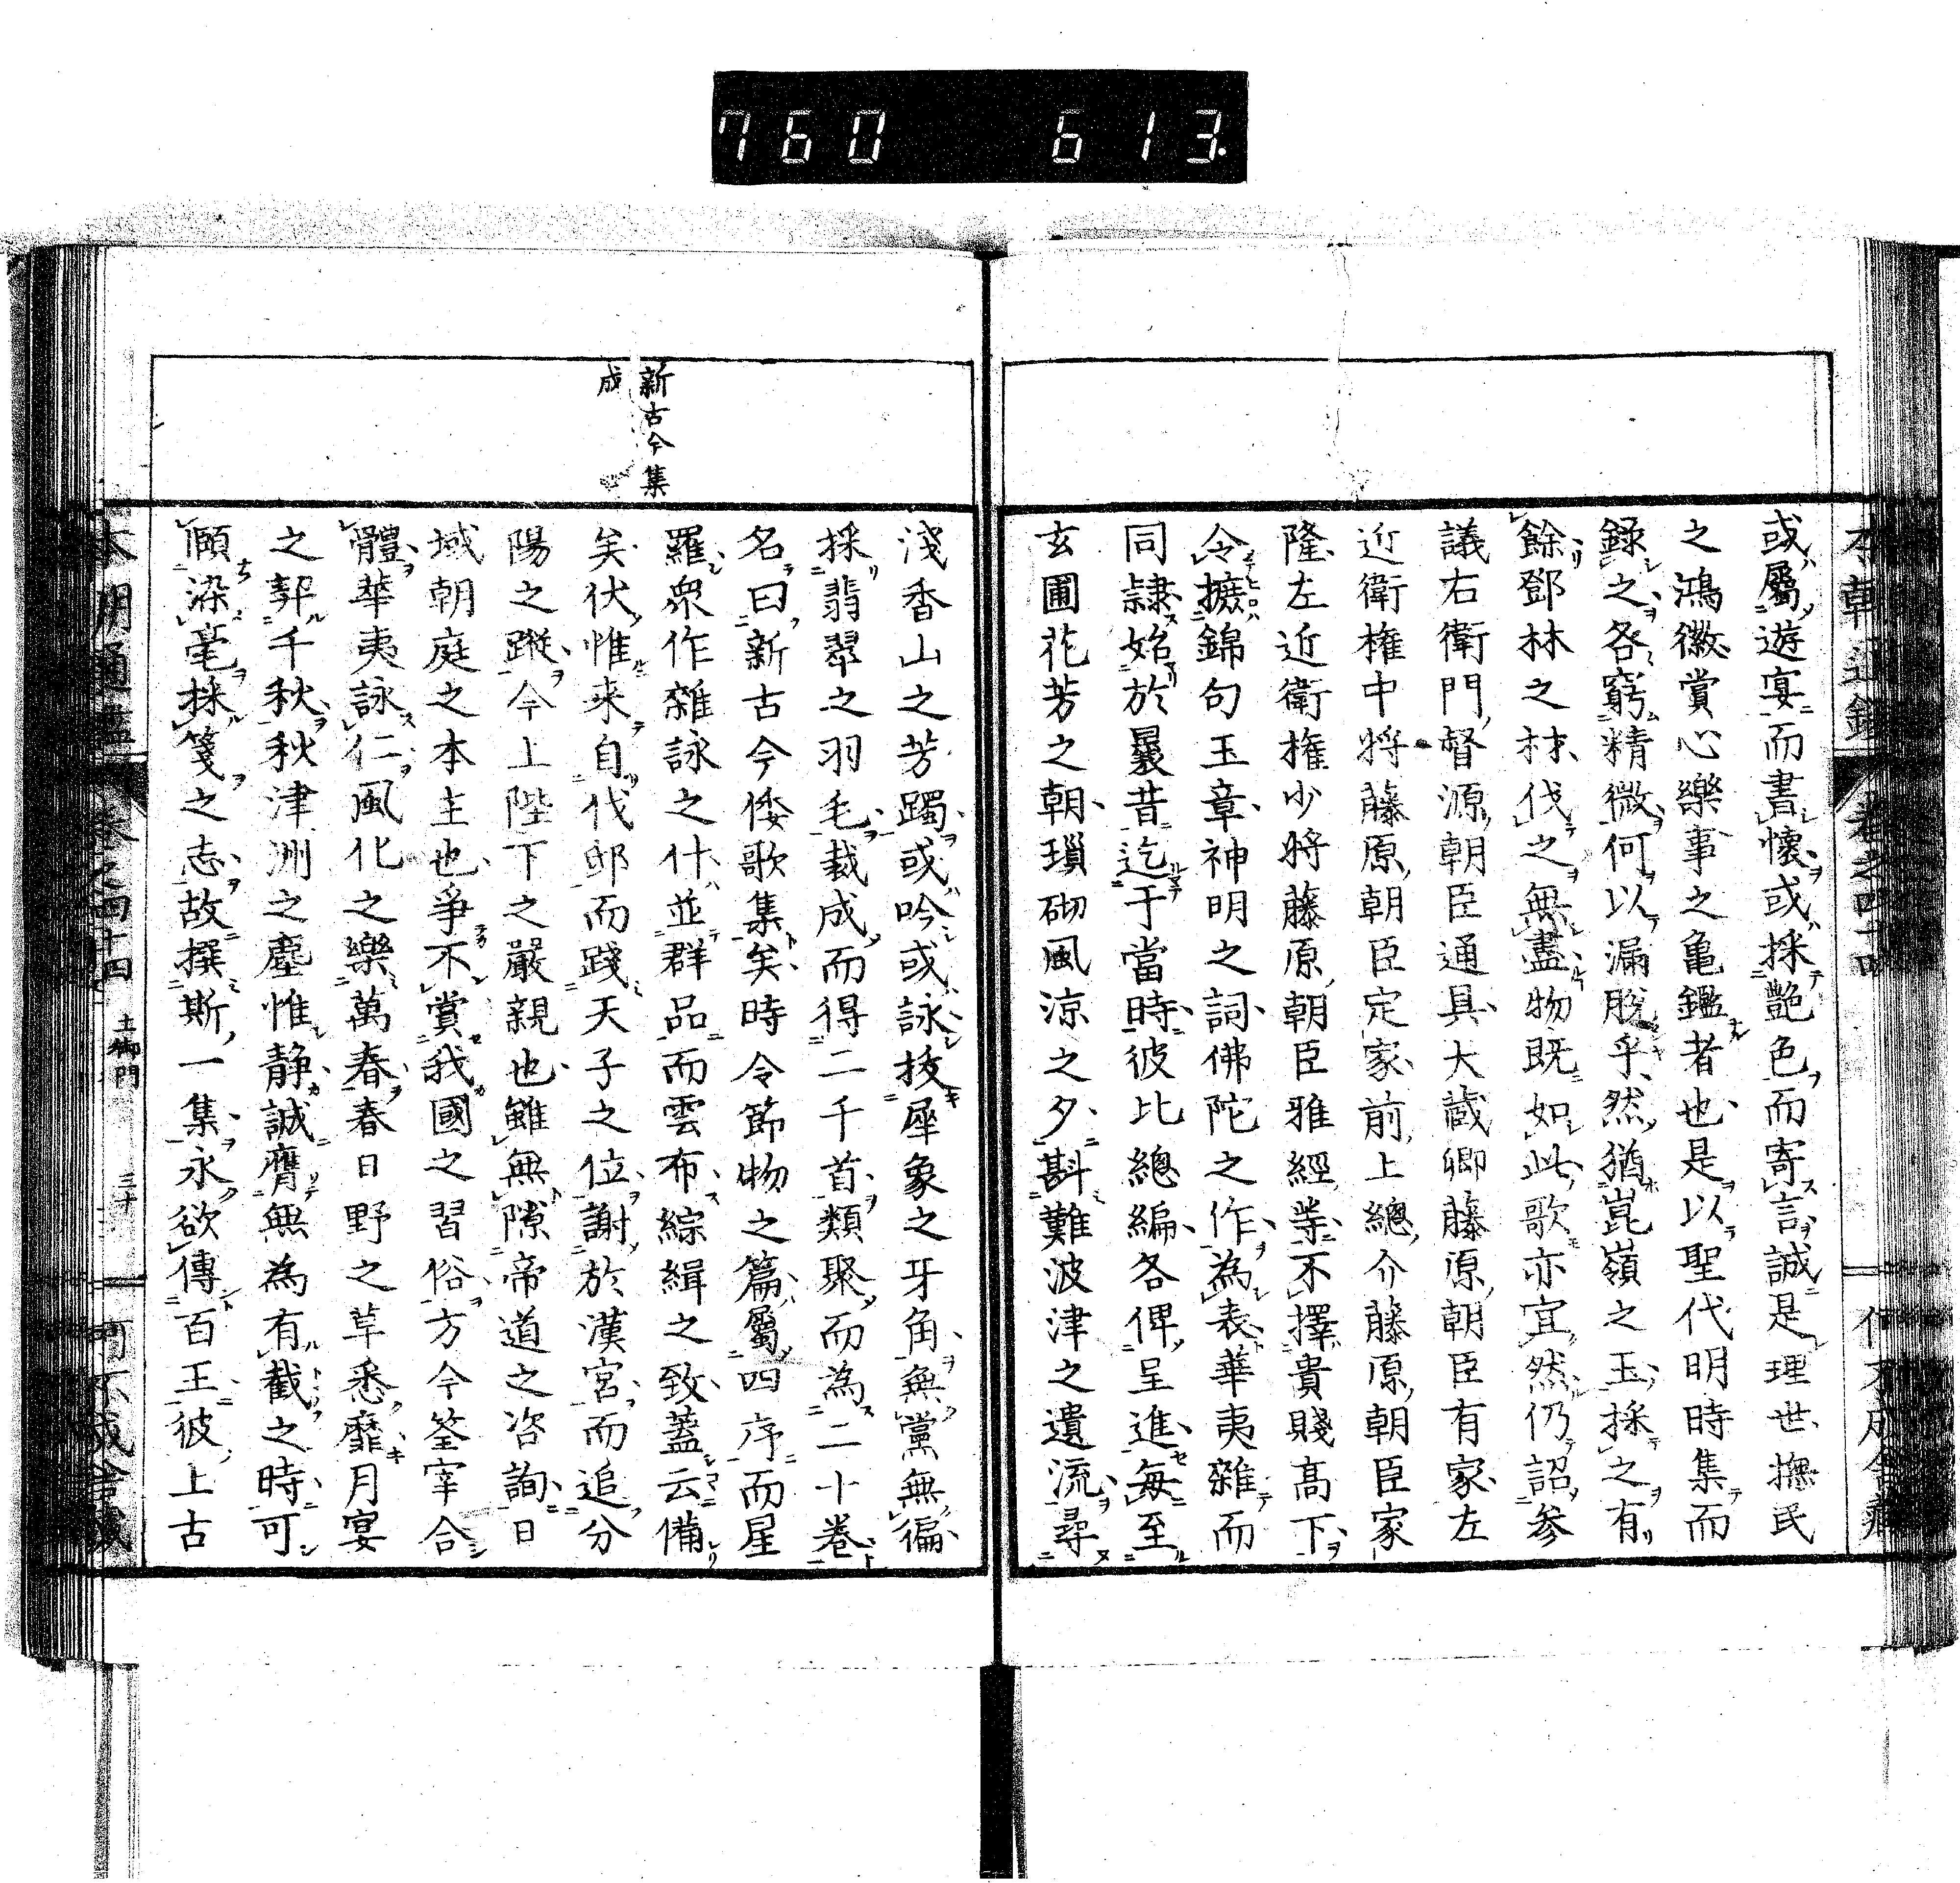 760 613.
或屬遊宴而書懷或採艷色而寄言誠是理世撫民
之鴻徽賞心樂事之亀鑑者也是以聖代明時集而
録之各窮精微何以漏脱乎然猶崑嶺之玉採之有
餘鄧林之材伐之無盡物既如此歌亦宜然仍詔参
議右衛門督源朝臣通具大蔵卿藤原朝臣有家左
近衛権中将藤原朝臣定家前上總介藤原朝臣家
隆左近衛権少将藤原朝臣雅經等不擇貴賤髙下
令摭錦句玉章神明之詞佛陀之作為表華夷雜而
同隷始於曩昔迄于當時彼比總編各俾呈進毎至
玄圃花芳之朝瑣砌風涼之夕斟難波津之遺流尋
新古今集
成
淺香山之芳躅或吟或詠抜犀象之牙角無黨無偏
採翡翠之羽毛裁成而得二千首類聚而為二十巻
名曰新古今倭歌集矣時令節物之篇屬四序而星
羅衆作雜詠之什並群品而雲布綜緝之致蓋云備
矣伏惟来自代邸而踐天子之位謝於漢宮而追分
陽之蹤今上陛下之嚴親也雖無隙帝道之咨詢日
域朝庭之本主也爭不賞我國之習俗方今荃宰合
體華夷詠仁風化之樂萬春春日野之草悉靡月宴
之契千秋秋津洲之塵惟静誠膺無為有截之時可
願染毫採箋之志故撰斯一集永欲傳百王彼上古
本朝通鑑 巻之四十四 土御門 三十